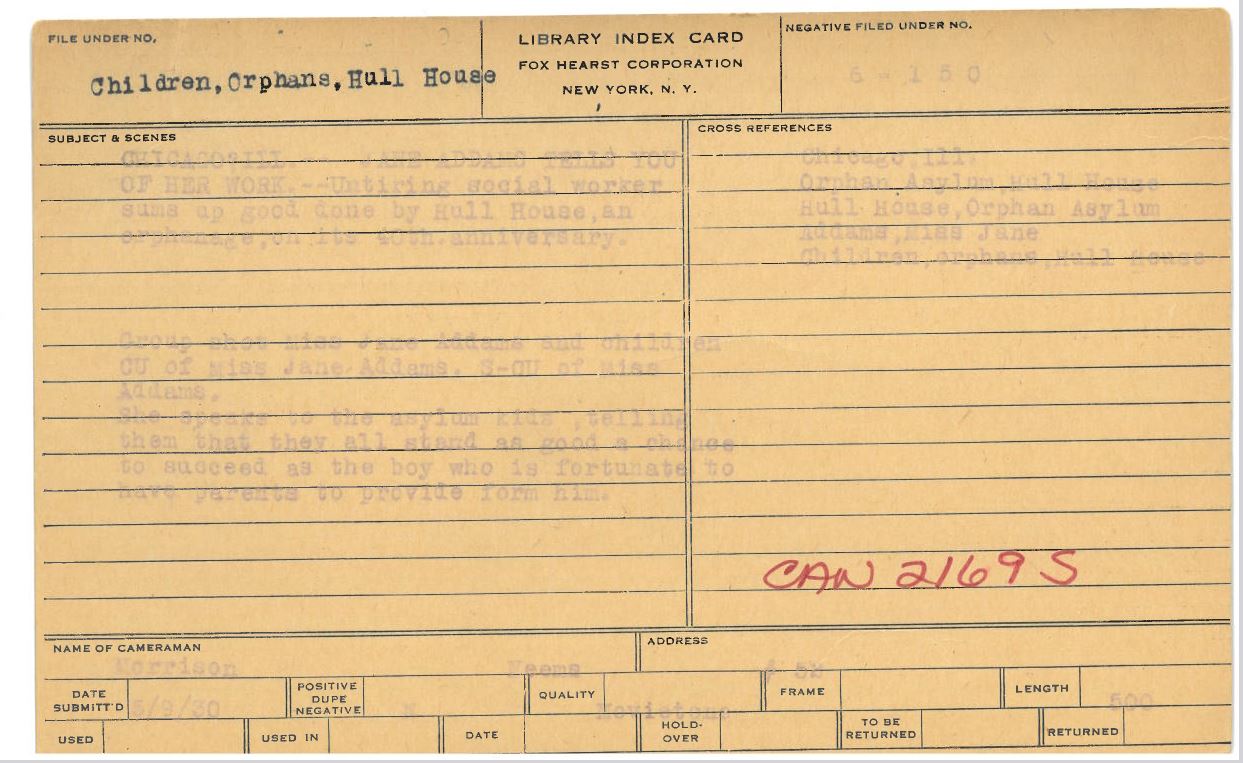 FILE UNDER NO.
Children,Orphans,Hull House
LIBRARY INDEX CARD
FOX HEARST CORPORATION
NEW YORK, N. Y.
NEGATIVE FILED UNDER NO.
6 - 1 5 0
SUBJECT & SCENES
CHICAGO,ILL.-- JANE ADDAMS TELLS YOU
OF HER WORK.--Untiring social worker
sums up good done by Hull House,an
orphanage,on its 40th.anniversary.
Group shot Miss Jane Addams and children
CU of Miss Jane Addams. S-CU of Miss
Addams.
She speaks to the asylum kids ,telling
them that they all stand as good a chance
to succeed as the boy who is fortunate to
have parents to provide form him.
CROSS REFERENCES
Chicago,Ill.
Orphan Asylum,Hull House
Hull House,Orphan Asylum
Addams,Miss Jane
Children,orphans,Hull House
CAN 2169 S
NAME OF CAMERAMAN
Morrison
Neems
ADDRESS
DATE SUBMITT'D
5/9/30
POSITIVE
DUPE
NEGATIVE
N
QUALITY
Movietone
FRAME
LENGTH
500
USED
USED IN
DATE
HOLD-
OVER
TO BE
RETURNED
RETURNED